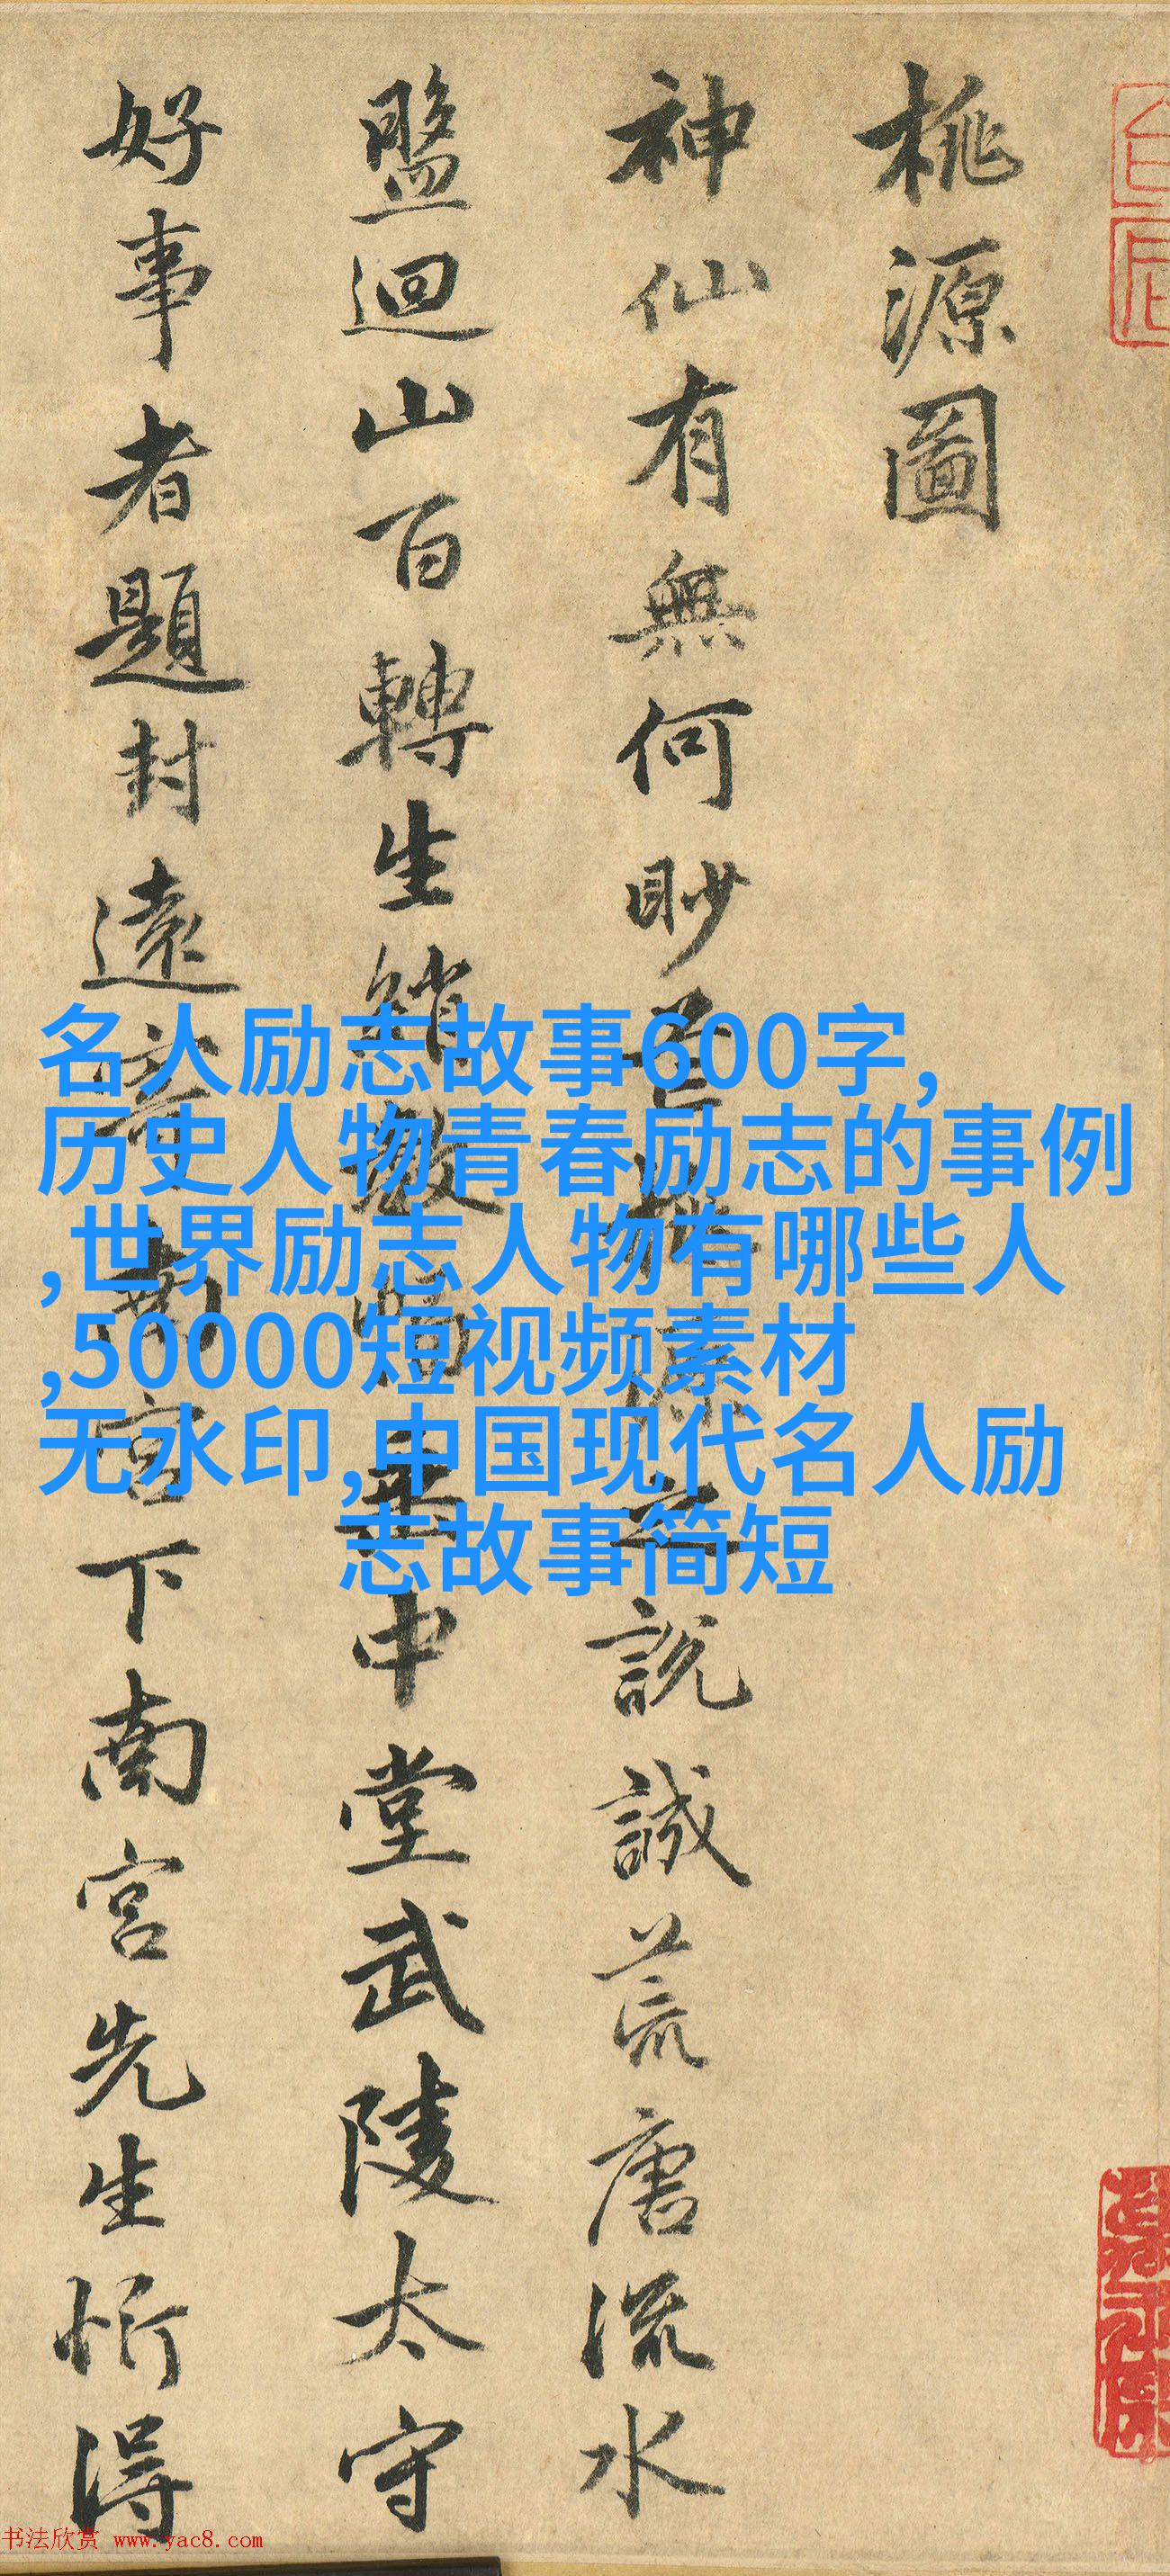 桃源圖
神仙有無何眇芒桃源之說誠荒唐流水
盤迴山百轉生綃數幅垂中堂武陵太守
好事者題封遠寄南宮下南宮先生忻得
名人励志故事600字,
历史人物青春励志的事例
,世界励志人物有哪些人
,50000短视频素材
无水印,中国现代名人励
志故事简短
书法欣赏 www.yac8.com